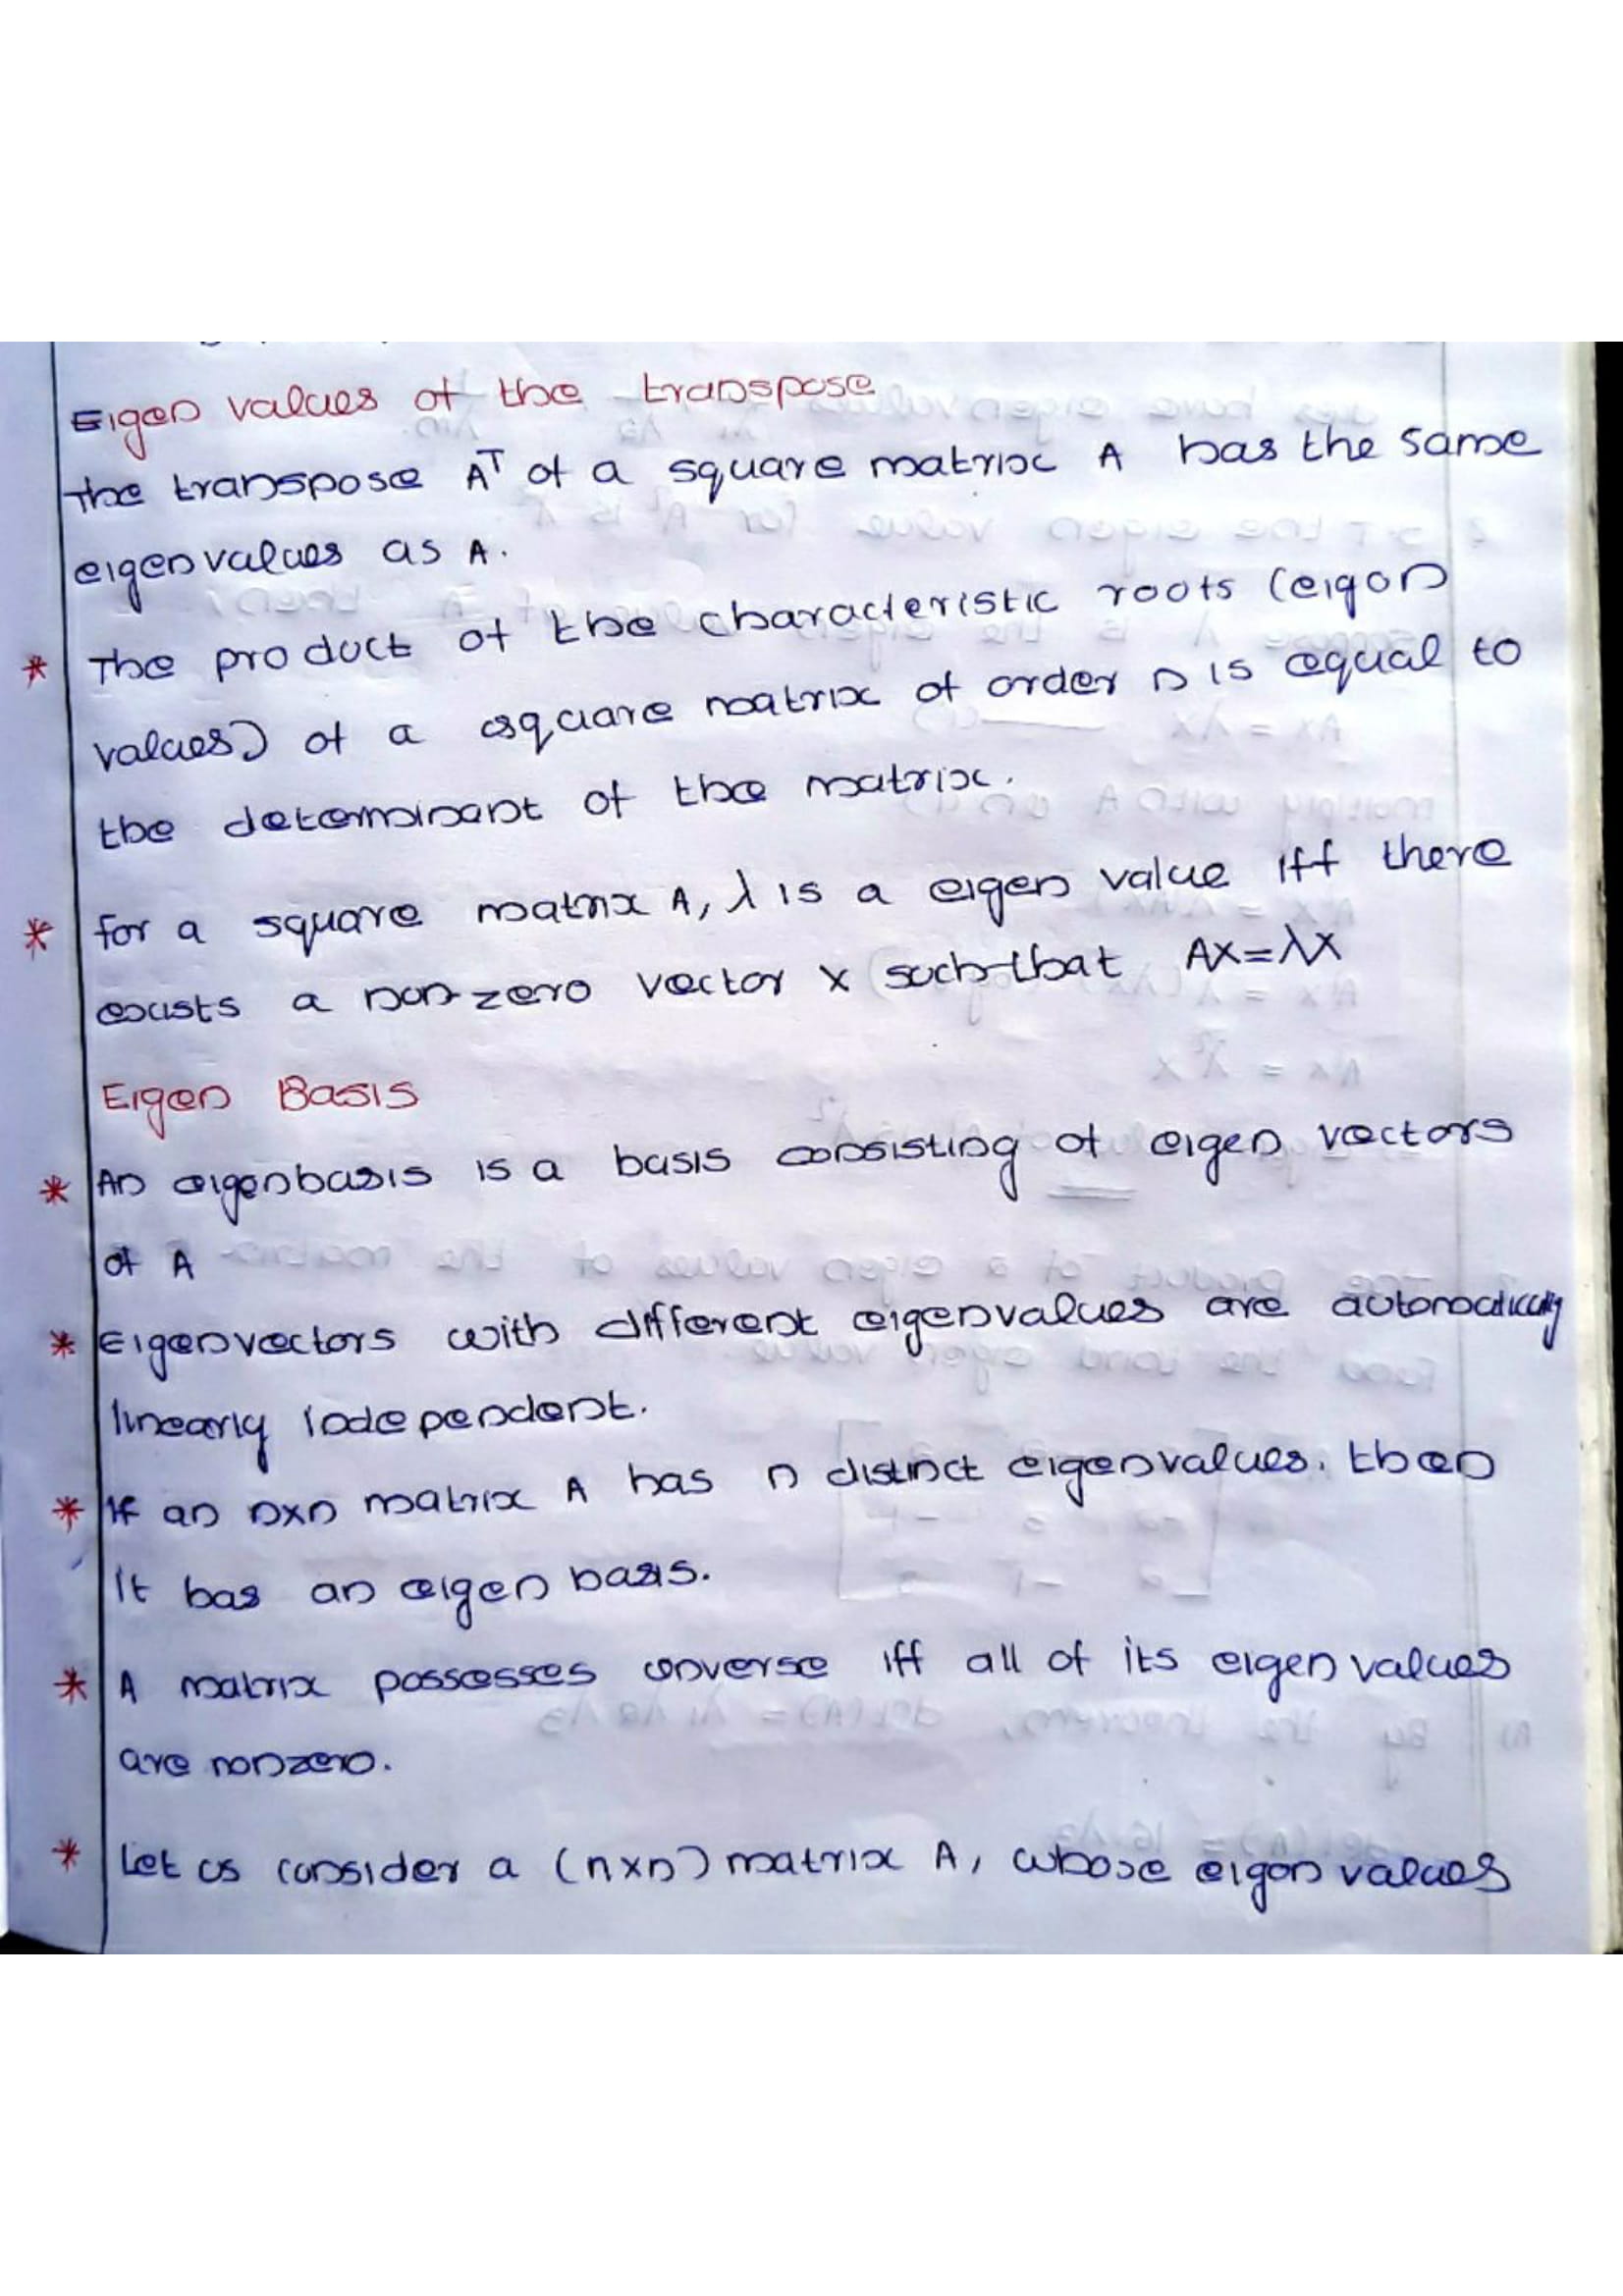 Eigen values of the transpose
The transpose Aᵀ of a square matrix A has the same
eigenvalues as A.
* The product of the characteristic roots (eigen
values) of a square matrix of order n is equal to
the determinant of the matrix.
* for a square matrix A, λ is a eigen value iff there
exists a non-zero vector x such that AX=λX
Eigen Basis
* An eigenbasis is a basis consisting of eigen vectors
of A
* Eigenvectors with different eigenvalues are automatically
linearly independent.
* If an nxn matrix A has n distinct eigenvalues. then
it has an eigen basis.
* A matrix possesses converse iff all of its eigen values
are nonzero.
* Let us consider a (nxn) matrix A, whose eigen values